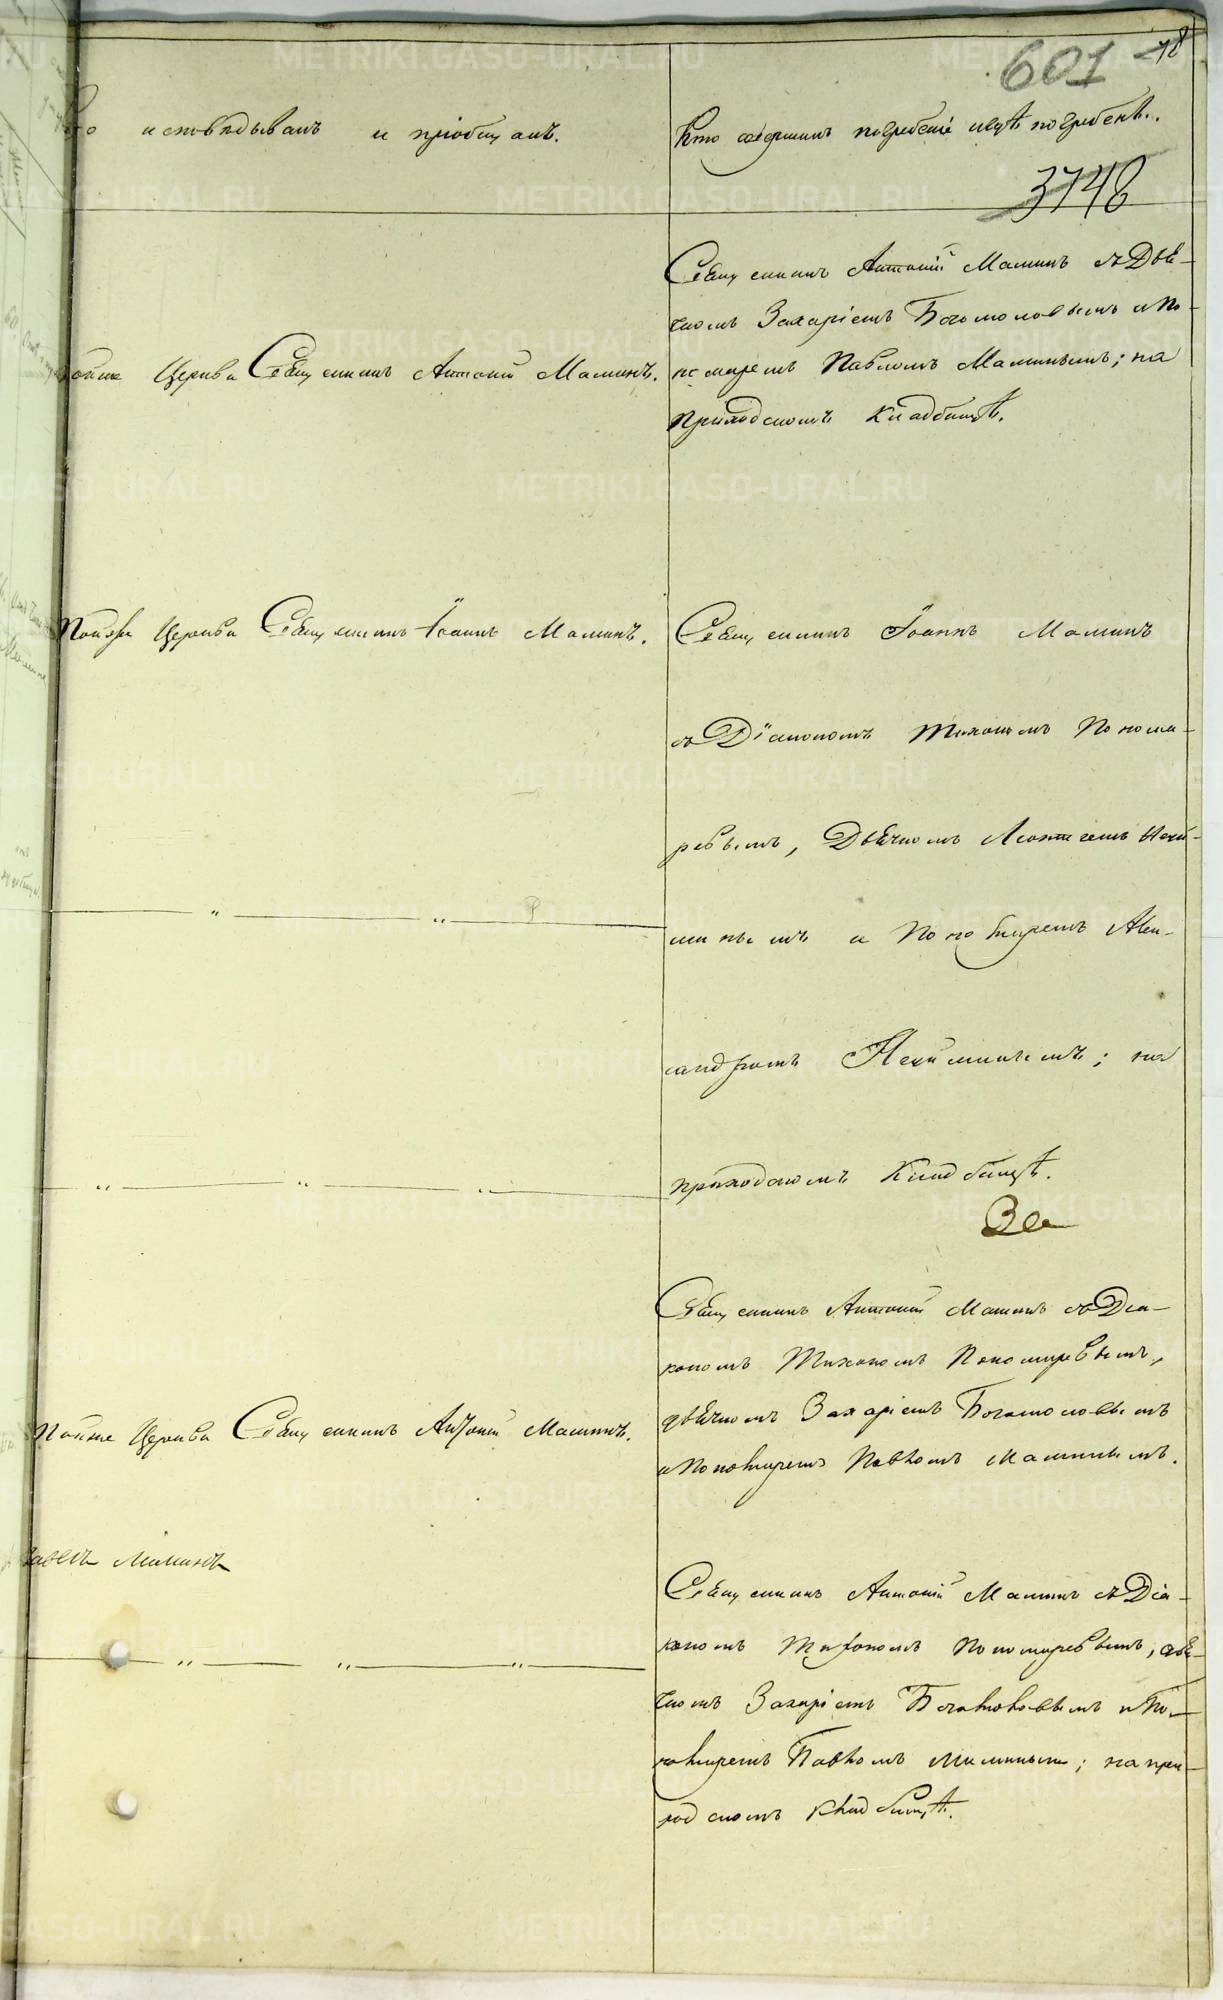 601
78
Кто исповѣдывалъ и пріобщалъ.
Кто совершалъ погребеніе и гдѣ погребенъ.
3748
Священникъ Антоній Маминъ съ Дьяч-
комъ Захаріемъ Богомоловымъ и По-
номаремъ Павломъ Маминымъ; на
приходскомъ кладбищѣ.
тойже Церкви Священникъ Антоній Маминъ.
Тойже Церкви Священникъ Іоаннъ Маминъ.
Священникъ Іоаннъ Маминъ
съ Діакономъ Тихономъ Понома-
ревымъ, Дьячкомъ
и Пономаремъ Алек-
сандромъ ; на
приходскомъ Кладбищѣ.
Священникъ Антоній Маминъ съ Діа-
кономъ Тихономъ Пономаревымъ,
дьячкомъ Захаріемъ Богомоловымъ
и Пономаремъ Павломъ Маминымъ.
Тойже Церкви Священникъ Антоній Маминъ.
Павелъ Маминъ
Священникъ Антоній Маминъ съ Діа-
кономъ Тихономъ Пономаревымъ, дья-
чкомъ Захаріемъ Богомоловымъ и По-
номаремъ Павломъ Маминымъ; на при-
ходскомъ кладбищѣ.
METRIKI.GASO-URAL.RU